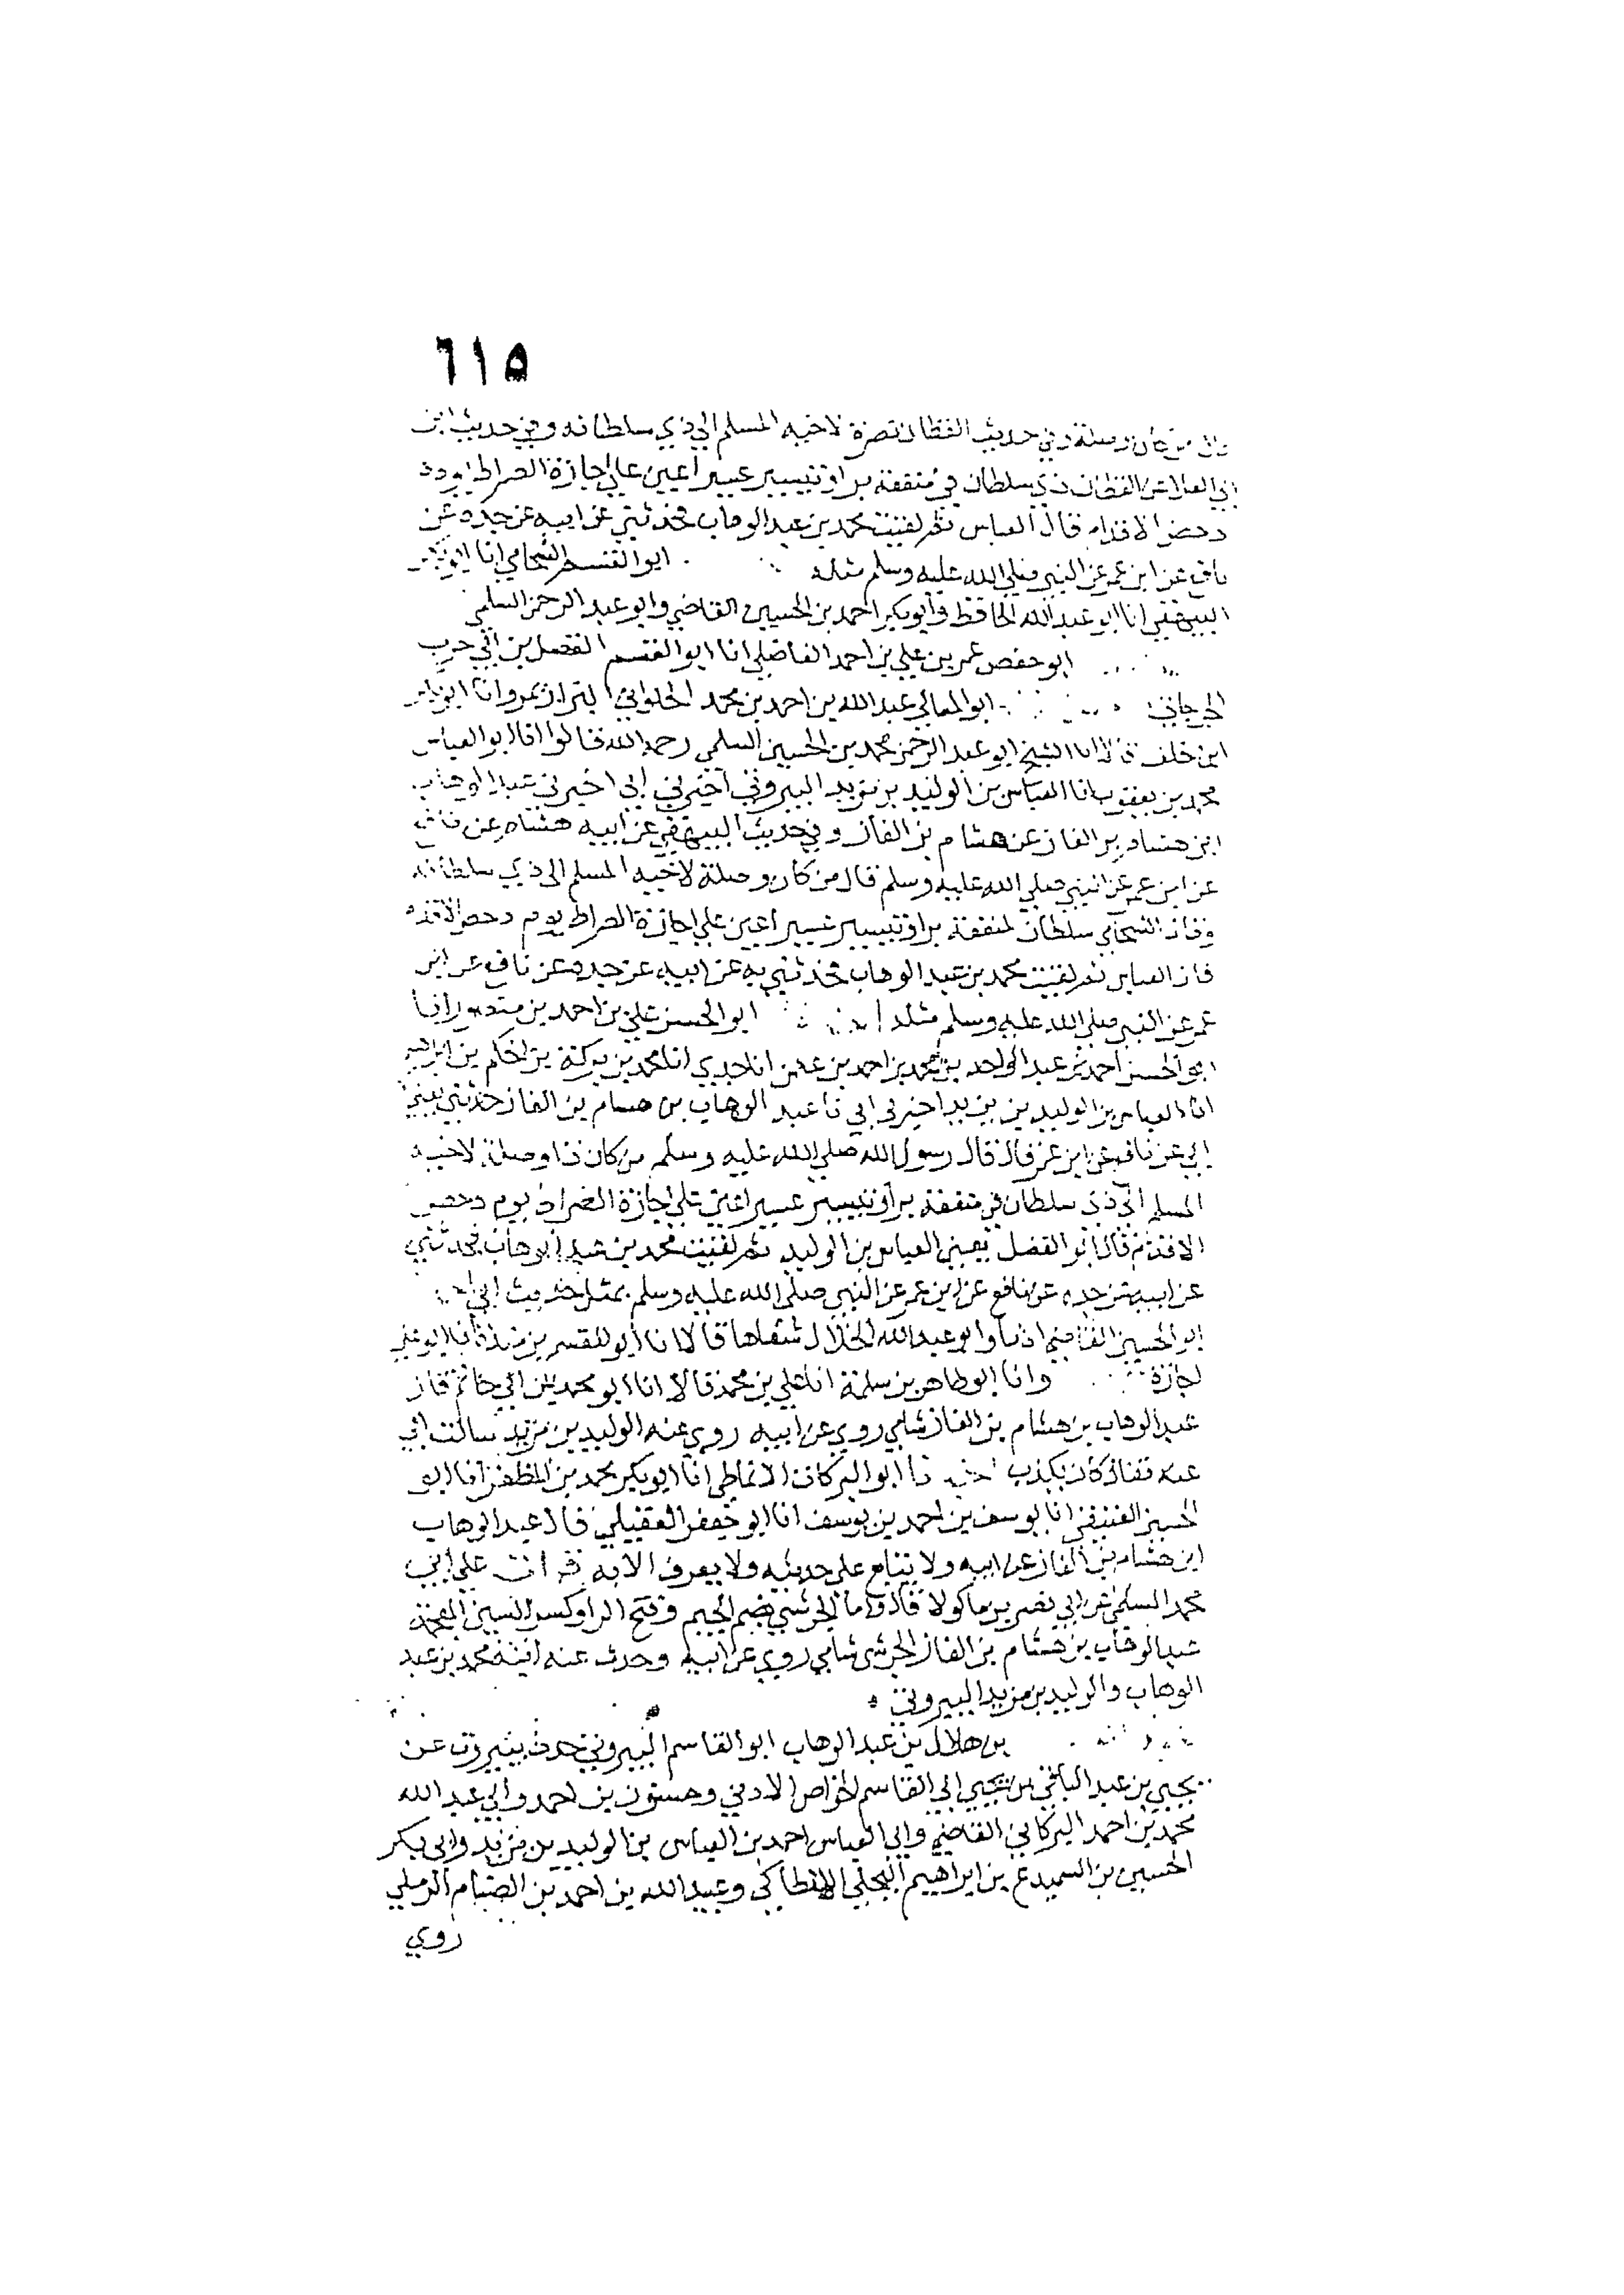 ٦١٥
قال من كان وصلة وفي حديث القطان نصرة لاخيه المسلم الى ذي سلطانه وفي حديث ابن
ابي العلاء عن القطان ذي سلطان في منفعة بر او تيسير عسير اعين على اجازة الصراط يوم
دحض الاقدام قال العباس ثم لقيت محمد بن عبد الوهاب فحدثني عن ابيه عن جده عن
نافع عن ابن عمر عن النبي صلى الله عليه وسلم مثله ابو القسم الشحامي انا ابو بكر
البيهقي انا ابو عبد الله الحافظ وابو بكر احمد بن الحسين القاضي وابو عبد الرحمن السلمي
ابو حفص عمر بن علي بن احمد الفاضلي انا ابو القسم الفضل بن ابي حرب
الجرجاني ابو المعالي عبد الله بن احمد بن محمد الحلواني البزاز بمرو انا ابو بكر
ابن خلف قالا انا الشيخ ابو عبد الرحمن محمد بن الحسين السلمي رحمه الله قالوا انا ابو العباس
محمد بن يعقوب انا العباس بن الوليد بن مزيد البيروتي اخبرني ابي اخبرني عبد الوهاب
ابن هشام بن الغاز عن هشام بن الغاز وفي حديث البيهقي عن ابيه هشام عن نافع
عن ابن عمر عن النبي صلى الله عليه وسلم قال من كان وصلة لاخيه المسلم الى ذي سلطانه
وقال الشحامي سلطان لمنفعة بر او تيسير عسير اعين على اجازة الصراط يوم دحض الاقدام
قال العباس ثم لقيت محمد بن عبد الوهاب فحدثني به عن ابيه عن جده عن نافع عن ابن
عمر عن النبي صلى الله عليه وسلم مثله ابو الحسن علي بن احمد بن منصور انا
ابو الحسن احمد بن عبد الواحد بن محمد بن احمد بن عثمن انا جدي انا محمد بن بركة بن الحكم بن ابراهيم
انا العباس بن الوليد بن يزيد اخبرني ابي نا عبد الوهاب بن هشام بن الغاز حدثني يعني
ابي عن نافع عن ابن عمر قال قال رسول الله صلى الله عليه وسلم من كان ذا وصلة لاخيه
المسلم الى ذي سلطان في منفعة بر او تيسير عسير اعين على اجازة الصراط يوم دحض
الاقدام قال ابو الفضل يعني العباس بن الوليد ثم لقيت محمد بن عبد الوهاب فحدثني
عن ابيه عن جده عن نافع عن ابن عمر عن النبي صلى الله عليه وسلم بمثل حديث ابي
ابو الحسين القاضي اذنا وابو عبد الله الخلال شفاها قالا انا ابو القسم بن منده انا ابو علي
اجازة وانا ابو طاهر بن سلمة انا علي بن محمد قالا انا ابو محمد بن ابي حاتم قال
عبد الوهاب بن هشام بن الغاز شامي روى عن ابيه روى عنه الوليد بن مزيد سالت ابي
عنه فقال كان يكذب نا ابو البركات الانماطي انا ابو بكر محمد بن المظفر انا ابو
الحسين العتيقي انا يوسف بن احمد بن يوسف انا ابو جعفر العقيلي قال عبد الوهاب
ابن هشام بن الغاز عن ابيه ولا يتابع على حديثه ولا يعرف الا به قرات على ابي
محمد السلمي عن ابي نصر بن ماكولا قال واما الجرشي بضم الجيم وفتح الرا وكسر الشين المعجمة
عبد الوهاب بن هشام بن الغاز الجرشي شامي روى عن ابيه وحدث عنه ابنه محمد بن عبد
الوهاب والوليد بن مزيد البيروتي
بن هلال بن عبد الوهاب ابو القاسم البيروتي حدث ببيروت عن
يحيى بن عبد الباقي بن يحيى ابي القاسم الخواص الادني وحسنون بن احمد وابي عبد الله
محمد بن احمد البركاني القاضي وابي العباس احمد بن العباس بن الوليد بن مزيد وابي بكر
الحسين بن السميدع بن ابراهيم البجلي الانطاكي وعبيد الله بن احمد بن الصنام الرملي
روي